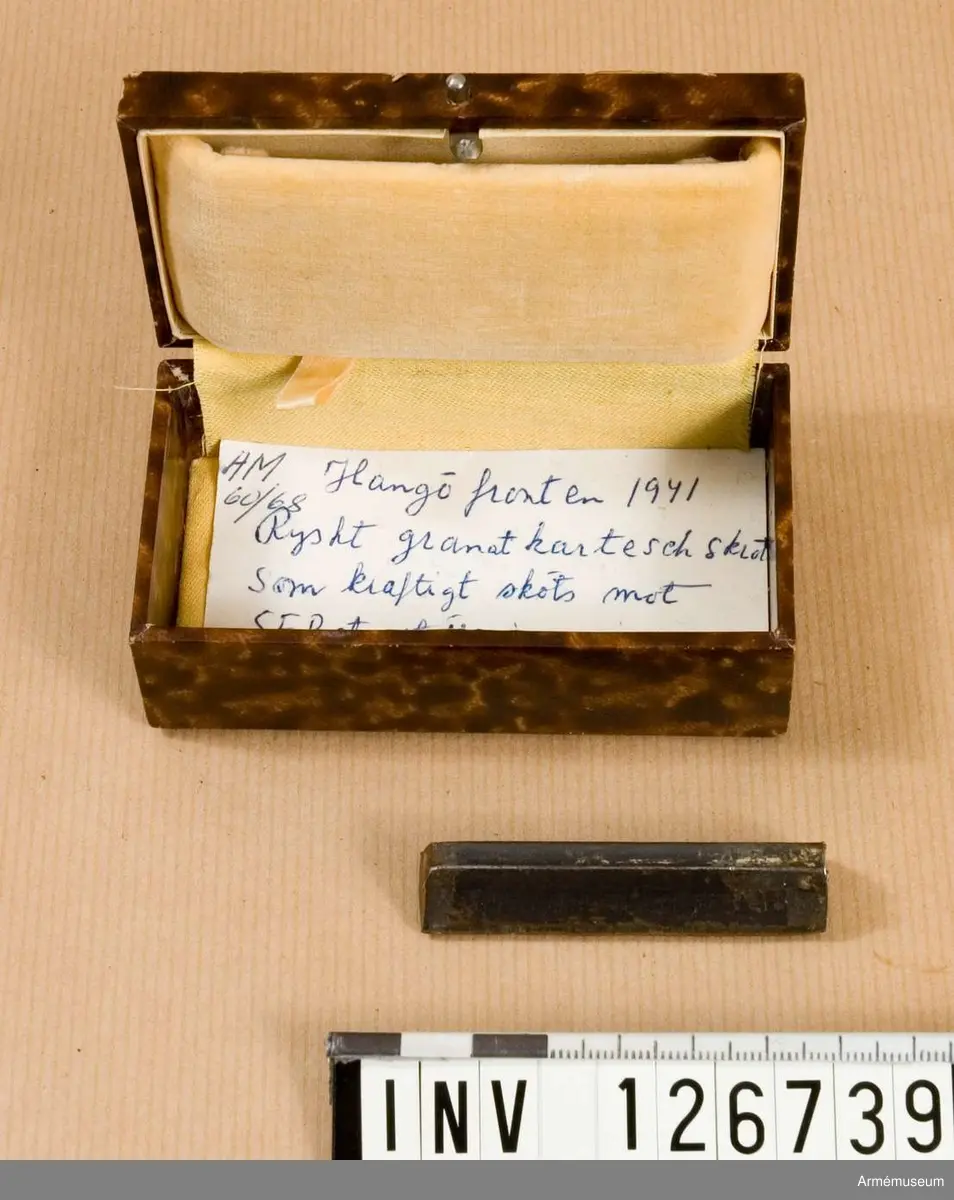 AM Hangö fronten 1941
60/68
Ryskt granatkarteschskrot
som kraftigt sköts mot
INV 126739
Armémuseum